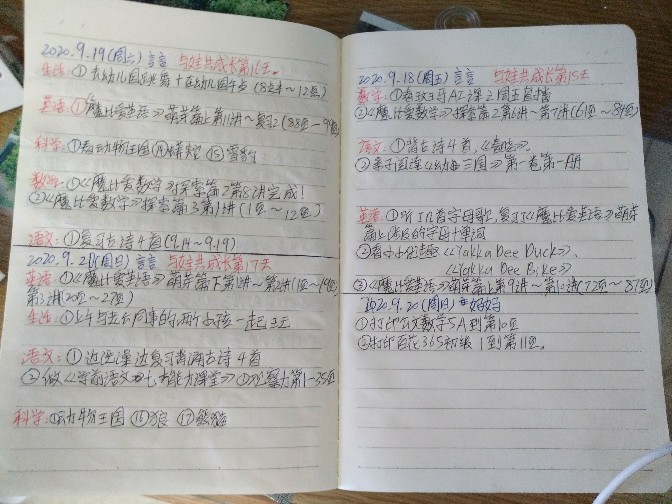 2020.9.19(周六) 言言 与娃共成长第16天。
生活:①去幼儿园
英语:①《魔比爱英语》萌芽篇上第11讲~复习2(88页-99页)
科学:①看动物王国⑭ ⑮雪豹
数学:①《魔比爱数学》探索篇2第8讲完成!
②《魔比爱数学》探索篇3第1讲(1页~12页)
语文:①复习古诗4首(9.14~9.19)
2020.9.2 (周日) 言言 与娃共成长第17天
英语:①《魔比爱英语》萌芽篇下第1讲~第2讲(1页~19页)
第3讲(20页~27页)
生活:①上午与 同事的两个小孩一起玩
语文:① 边复习背诵古诗4首
②做《学前语文 能力课堂》①观察力第1-35页
科学:①动物王国 ⑯狼 ⑰熊猫
2020.9.18(周五) 言言 与娃共成长第15天
数学:①看 AI课2周五直播
②《魔比爱数学》探索篇2第6讲~第7讲(61页~84页)
语文:①背古诗4首,
②亲子阅读《幼 三国》第一卷第一册
英语:①听 字母歌,复习《魔比爱英语》萌芽
篇上 的字母+单词
②看 《Yakka Dee Duck》、
《Yakka Dee Bike》
③《魔比爱英语》萌芽篇上第9讲~第10讲(72页~87页)
2020.9.20(周日) 好好
①打印公文数学5A到第10页
②打印百花365初级 1到第11页。